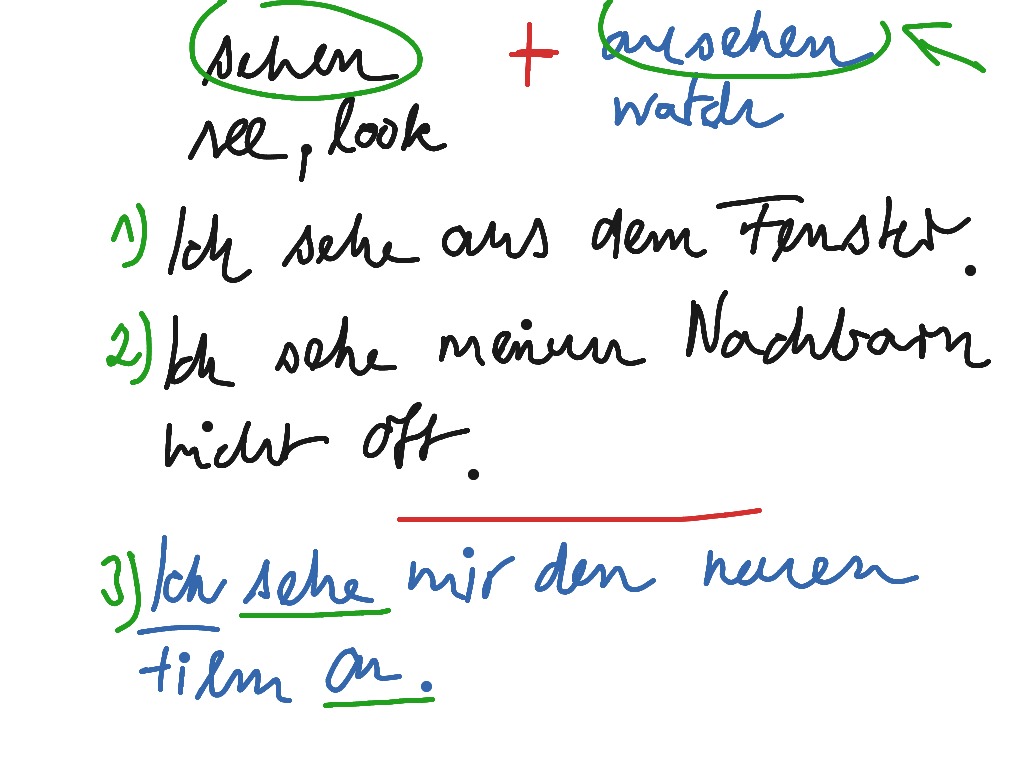 sehen + ansehen
see, look watch
1) Ich sehe aus dem Fenster.
2) Ich sehe meinen Nachbarn
nicht oft.
3) Ich sehe mir den neuen
Film an.